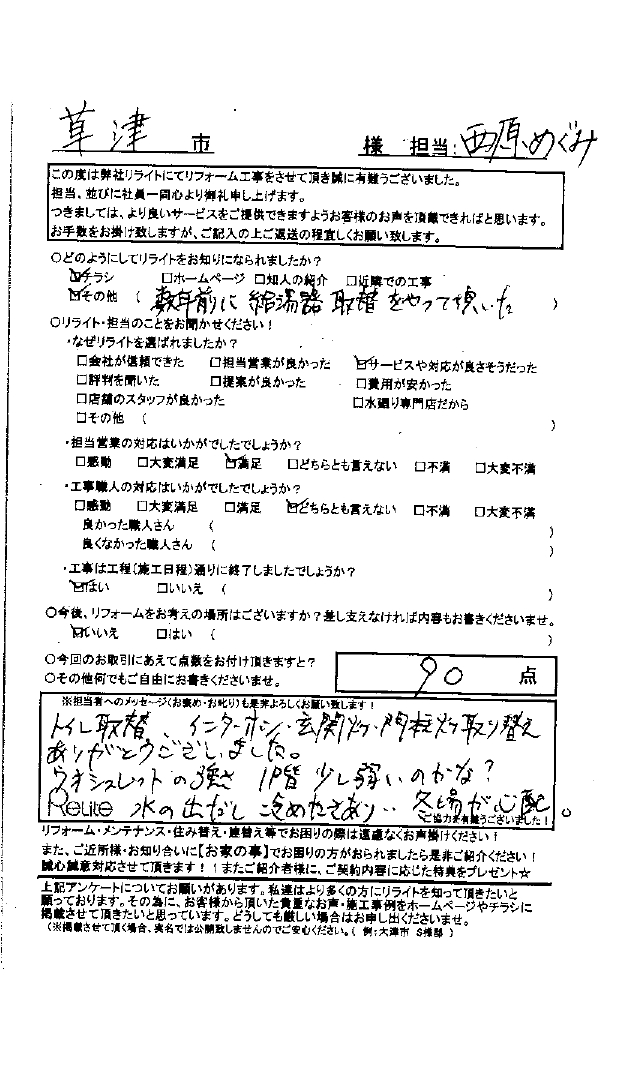 草津市 様 担当:西原めぐみ
この度は弊社リライトにてリフォーム工事をさせて頂き誠に有難うございました。
担当、並びに社員一同心より御礼申し上げます。
つきましては、より良いサービスをご提供できますようお客様のお声を頂戴できればと思います。
お手数をお掛け致しますが、ご記入の上ご返送の程宜しくお願い致します。
○どのようにしてリライトをお知りになられましたか?
☑チラシ □ホームページ □知人の紹介 □近隣での工事
☑その他 ( 数年前に給湯器取替をやって頂いた )
○リライト・担当のことをお聞かせください!
・なぜリライトを選ばれましたか?
□会社が信頼できた □担当営業が良かった ☑サービスや対応が良さそうだった
□評判を聞いた □提案が良かった □費用が安かった
□店舗のスタッフが良かった □水廻り専門店だから
□その他 ( )
・担当営業の対応はいかがでしたでしょうか?
□感動 □大変満足 ☑満足 □どちらとも言えない □不満 □大変不満
・工事職人の対応はいかがでしたでしょうか?
□感動 □大変満足 □満足 ☑どちらとも言えない □不満 □大変不満
良かった職人さん ( )
良くなかった職人さん ( )
・工事は工程(施工日程)通りに終了しましたでしょうか?
☑はい □いいえ ( )
○今後、リフォームをお考えの場所はございますか?差し支えなければ内容もお書きくださいませ。
☑いいえ □はい ( )
○今回のお取引にあえて点数をお付け頂きますと? 90 点
○その他何でもご自由にお書きくださいませ。
※担当者へのメッセージ(お褒め・お叱り)も是非よろしくお願い致します!
トイレ取替、インターホン・玄関灯・門柱灯取り替え
ありがとうございました。
ウオシュレットの強さ 1階 少し弱いのかな?
ReLite 水の出だし 冷めたさあり‥ 冬場が心配。
ご協力有難うございました!
リフォーム・メンテナンス・住み替え・建替え等でお困りの際は遠慮なくお声掛けください!
また、ご近所様・お知り合いに【お家の事】でお困りの方がおられましたら是非ご紹介ください!
誠心誠意対応させて頂きます!!またご紹介者様に、ご契約内容に応じた特典をプレゼント☆
上記アンケートについてお願いがあります。私達はより多くの方にリライトを知って頂きたいと
願っております。その為に、お客様から頂いた貴重なお声・施工事例をホームページやチラシに
掲載させて頂きたいと思っています。どうしても厳しい場合はお申し出くださいませ。
(※掲載させて頂く場合、実名では公開致しませんのでご安心ください。( 例:大津市 S様邸 )